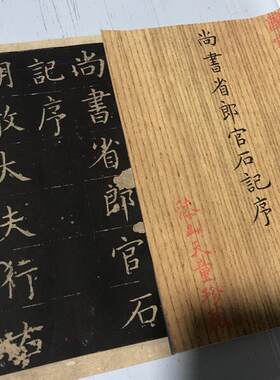 尚書省郎官石記序
尚書省郎官石
記序
朝散大夫行